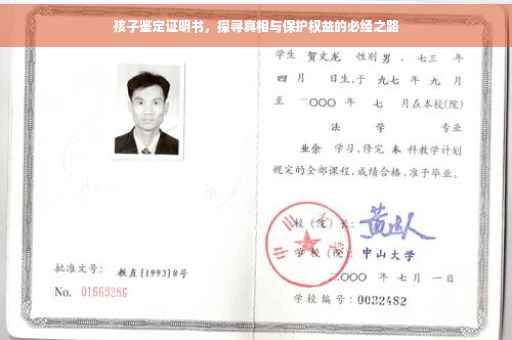 孩子鉴定证明书，探寻真相与保护权益的必经之路
学生 贺文龙 性别 男，七三 年
四 月 日生，于 九七 年 九 月
至 二〇〇〇 年 七 月在本校(院)
法 学 专业
业余 学习，修完 本 科教学计划
规定的全部课程，成绩合格，准予毕业。
校 (院) 长：
学 校 (院)： 中山大学
二〇〇〇 年 七 月 一 日
学校编号：0032482
批准文号： 教直[1993]8号
No. 01669286